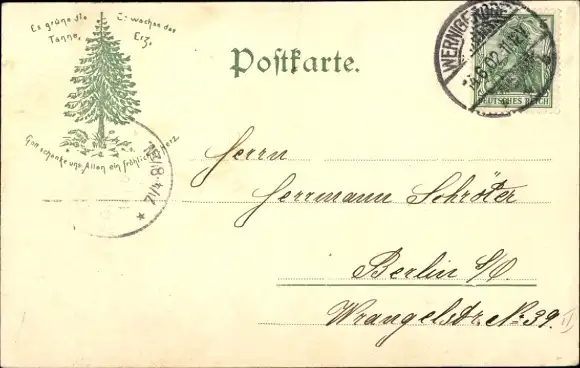 Es grüne die Tanne,
Es wachse das Erz,
Gott schenke uns Allen ein fröhliches Herz
Postkarte.
WERNIGERODE
6.02.11
DEUTSCHES REICH
7¼-8½
Herrn
Herrmann Schröter
Berlin S/O.
Wrangelstr. No. 39. II